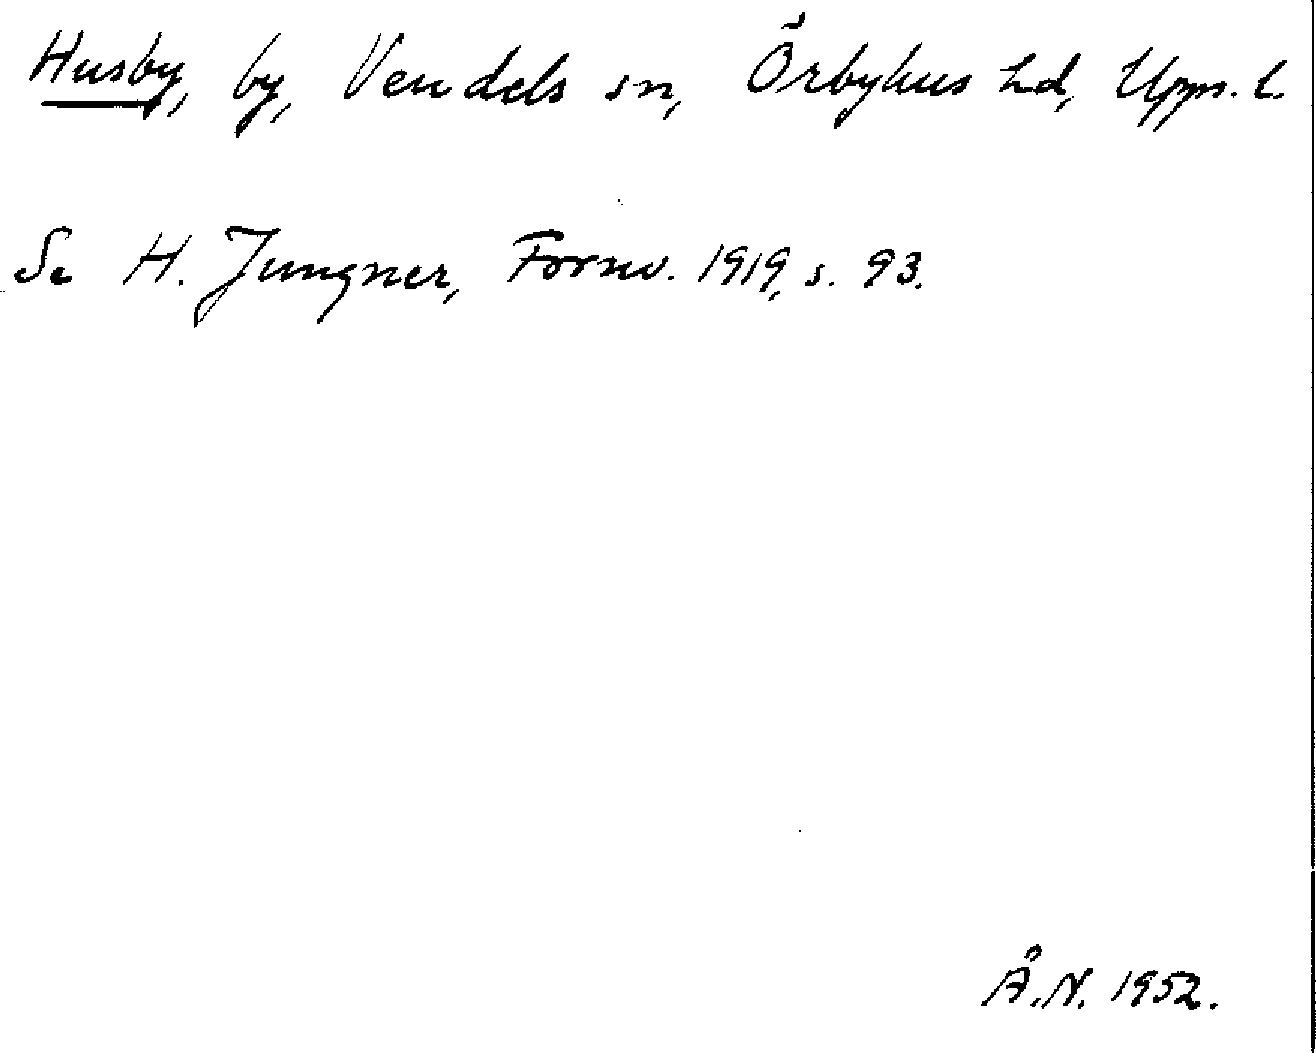 Husby, by, Vendels sn, Örbyhus hd, Upps. l.
Se H. Jungner, Fornv. 1919, s. 93.
Å.N. 1952.